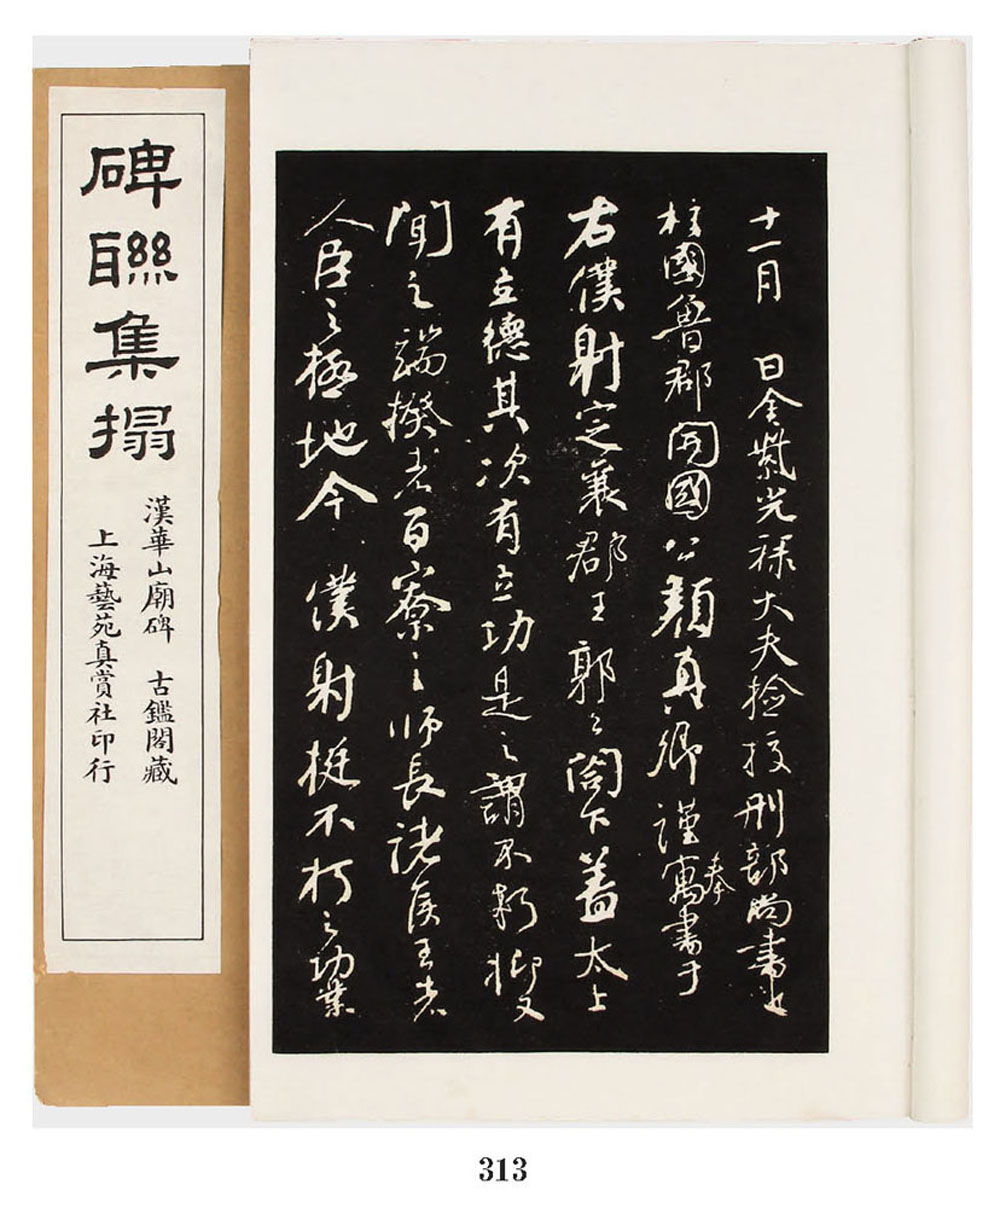 碑聯集搨
漢華山廟碑 古鑑閣藏
上海藝苑真賞社印行
十一月 日金紫光祿大夫檢挍刑部尚書上
柱國魯郡開國公顏真卿謹奉寓書于
右僕射定襄郡王郭公閤下蓋太上
有立德其次有立功是之謂不朽抑又
聞之端揆者百寮之師長諸侯王者
人臣之極地今 僕射挺不朽之功業
313